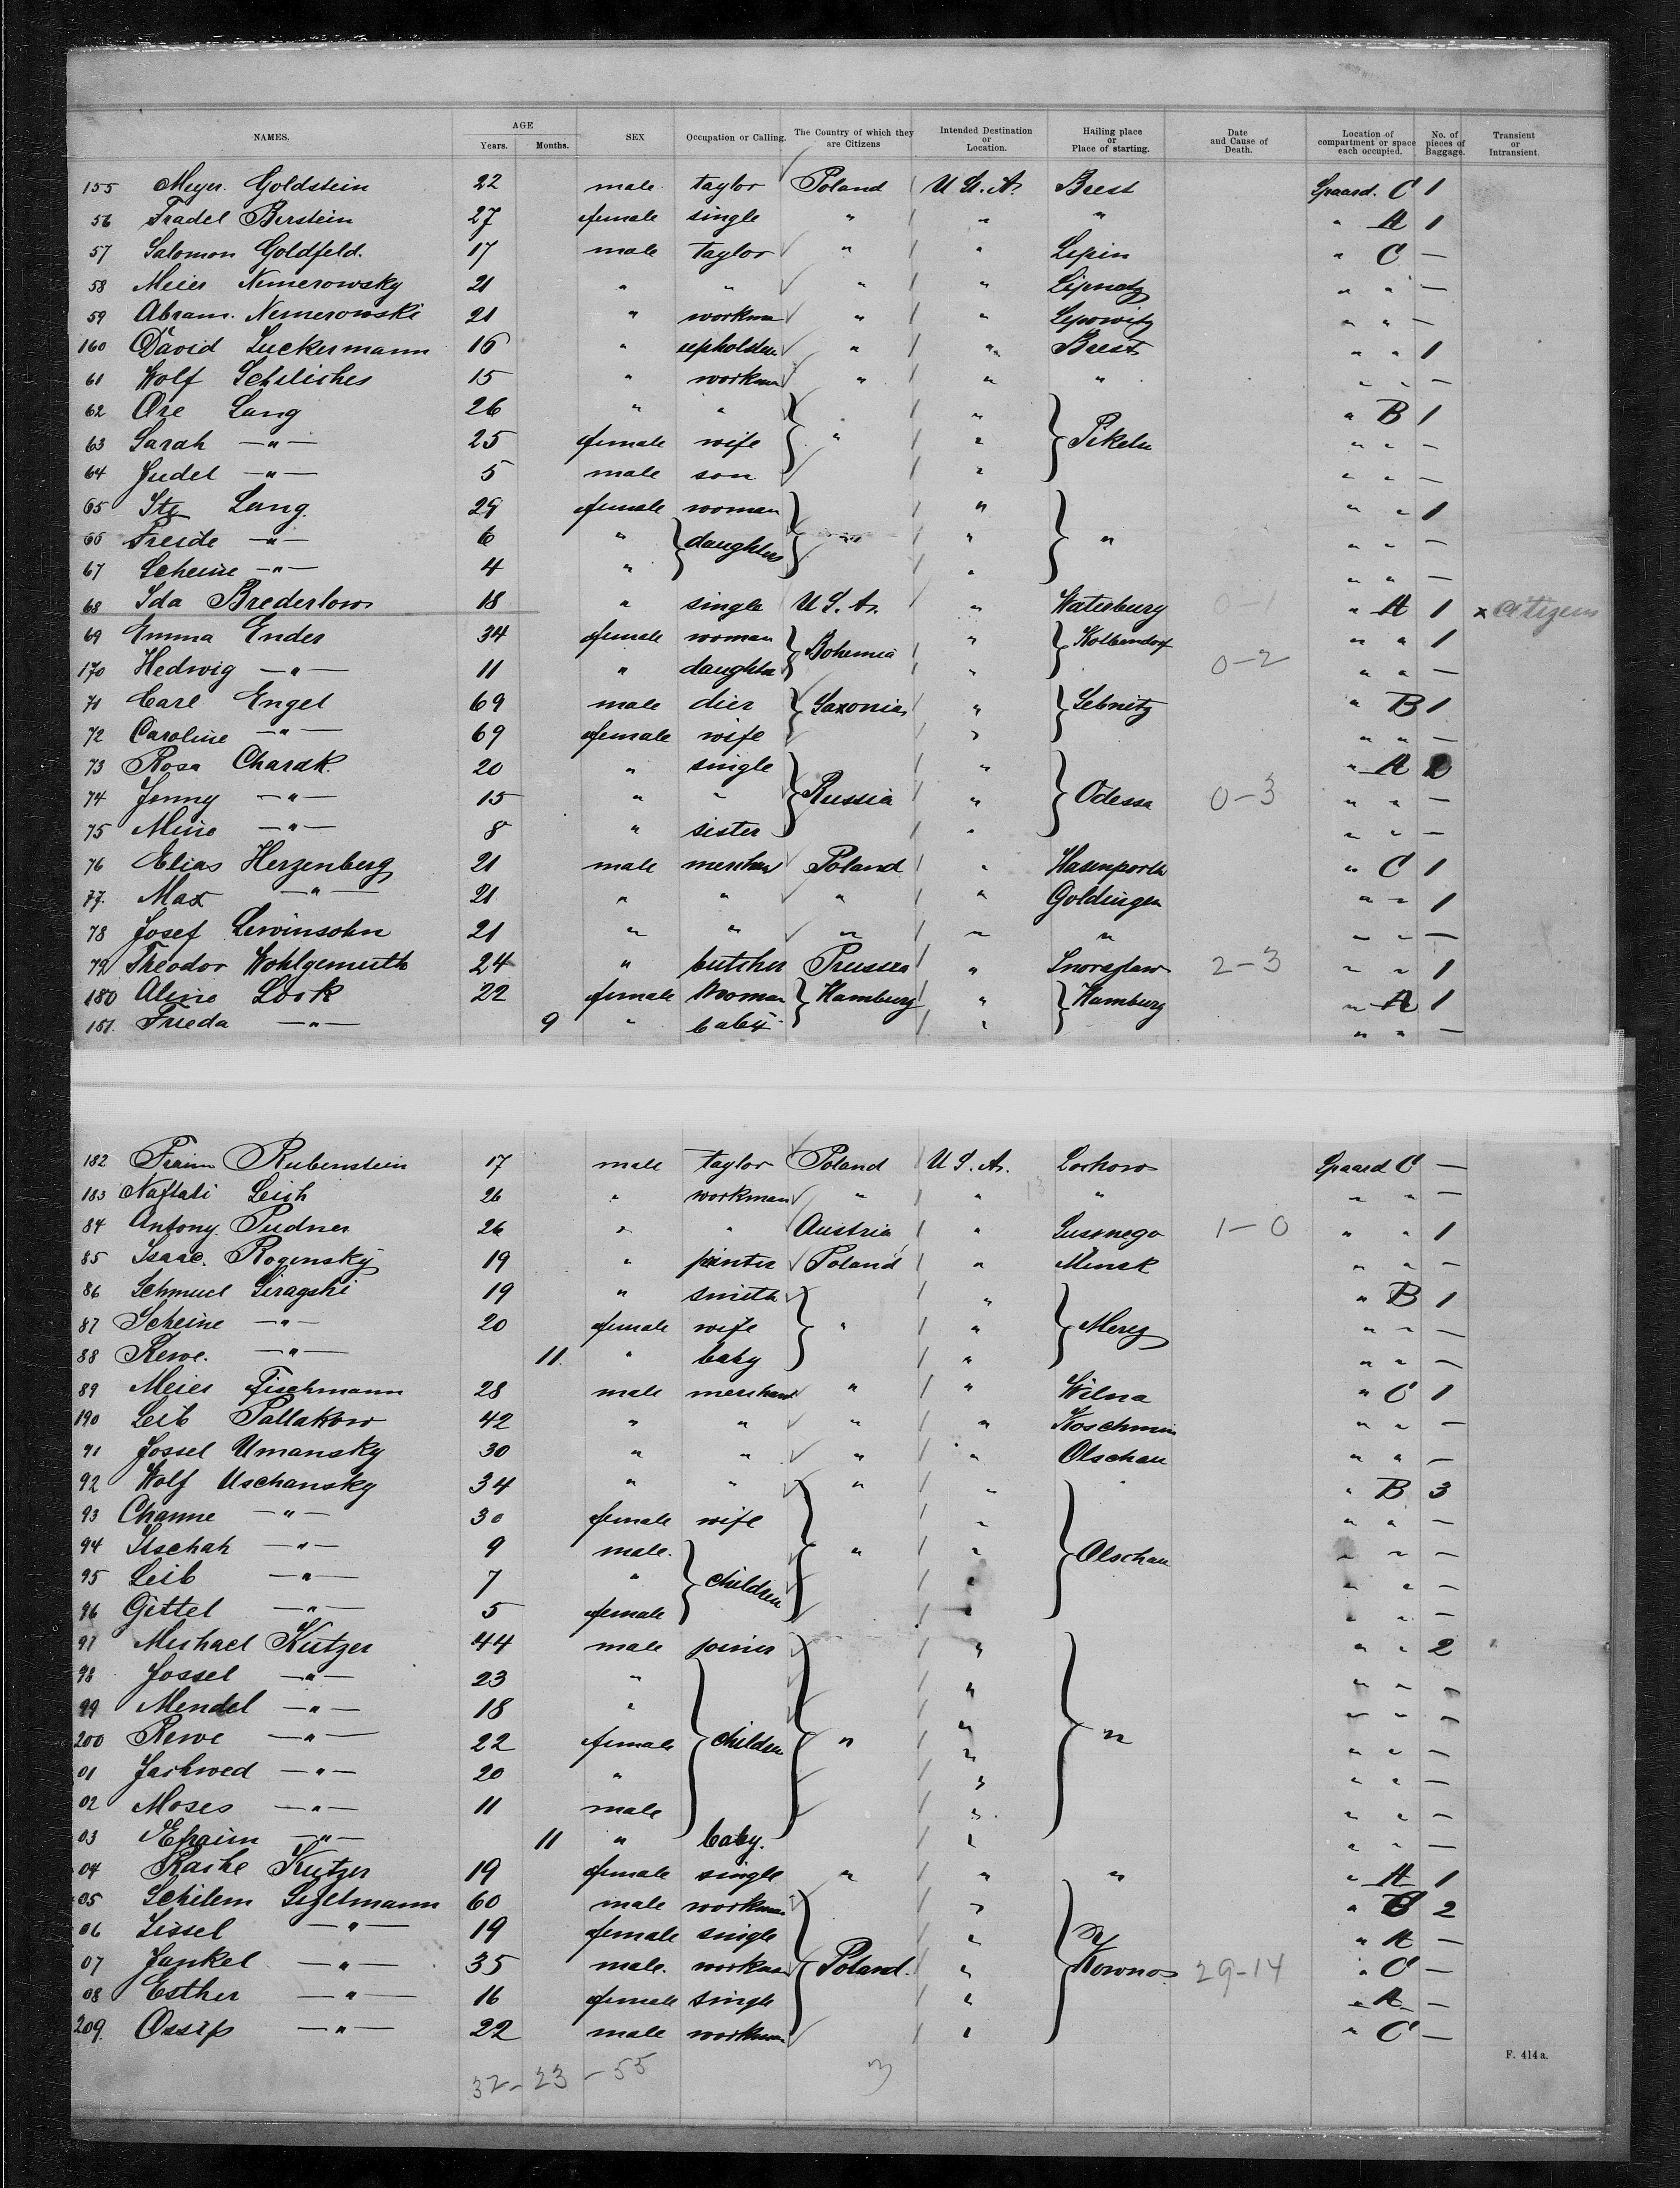 NAMES. AGE Years. Months. SEX Occupation or Calling. The Country of which they are Citizens Intended Destination or Location. Hailing place or Place of starting. Date and Cause of Death. Location of compartment or space each occupied. No. of pieces of Baggage. Transient or Intransient.
155 Meyer Goldstein 22 male taylor Poland U.S.A. Brest C 1
56 Fradel Berstein 27 female single " " " " A 1
57 Salomon Goldfeld. 17 male taylor " " Lipin " C —
58 Meier Nemerowsky 21 " " " " " " —
59 Abram Nemerowski 21 " workman " " Lipowitz " " —
160 David Luckermann 16 " upholster " " Brest " " 1
61 Wolf 15 " workman " " " " " —
62 Ore Lang 26 " " " " B 1
63 Sarah —"— 25 female wife " " Pikeln " " —
64 Judel —"— 5 male son " " " —
65 Ite Lang. 29 female woman " " " 1
66 Freide —"— 6 " daughters " " " " " —
67 Scheine —"— 4 " " " " —
68 Ida Brederlow 18 " single U.S.A. " Waterbury 0-1 " A 1 x citizen
69 Emma Ender 34 female woman Bohemia " Kolbendorf " " 1
170 Hedwig —"— 11 " daughter " 0-2 " " —
71 Carl Engel 69 male dier Saxonia " Sebnitz " B 1
72 Caroline —"— 69 female wife " " " —
73 Rosa Charak. 20 " single " " A
74 Jenny —"— 15 " " Russia " Odessa 0-3 " " —
75 Mine —"— 8 " sister " " " —
76 Elias Herzenberg 21 male merchant Poland " Hasenpoth " C 1
77. Max —"— 21 " " " " Goldingen " " 1
78 Josef Lewinsohn 21 " " " " " " " —
79 Theodor Wohlgemuth 24 " butcher Prussia " 2-3 " " 1
180 Aline Look 22 female Woman Hamburg " Hamburg " A 1
181. Frieda —"— 9 " baby " " " —
182 Rubenstein 17 male taylor Poland U.S.A. C —
183 Naftali 26 " workman " " " " " —
84 Antony Pudner 26 " " Austria " 1-0 " " 1
85 Isaac Rogensky 19 " Poland " Minsk " " —
86 Schmuel 19 " smith " " B 1
87 Scheine —"— 20 female wife " " Merez " " —
88 Rewe. —"— 11. " baby " " " —
89 Meier Fischmann 28 male merchant " " Wilna " C 1
190 Leib Pallakow 42 " " " " Koschmin " " —
91 Jossel Umansky 30 " " " " Olschau " " —
92 Wolf Uschansky 34 " " " " " " B 3
93 Channe —"— 30 female wife " " " —
94 —"— 9 male. " " Olschau " " —
95 Leib —"— 7 " children " " " —
96 Gittel —"— 5 female " " " —
97 Michael Kutzer 44 male joiner " " " 2
98 Jossel —"— 23 " " " " —
99 Mendel —"— 18 " " " —
200 Rewe —"— 22 female children " " " " " —
01 —"— 20 " " " " —
02 Moses —"— 11 male " " " —
03 Efraim —"— 11 " baby. " " " —
04 Kutzer 19 female single " " " " A 1
05 Schilem 60 male workman " " 2
06 Lissel —"— 19 female single " " A —
07 Jankel —"— 35 male. workman Poland. " Kowno 29-14 " C —
08 Esther —"— 16 female single " " A —
209. Ossip —"— 22 male workman " " C —
32-23-55 3
F. 414 a.